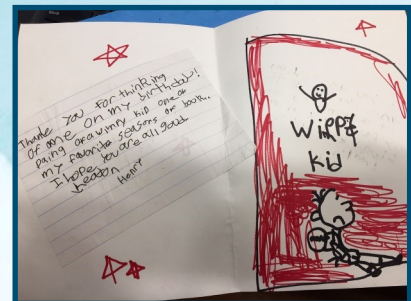 Thank you for thinking
of me on my birthday!
Daing of a wimpy kid one of
my favorite seasons of book.
I hope you are all good
Henry
Wimpy
Kid